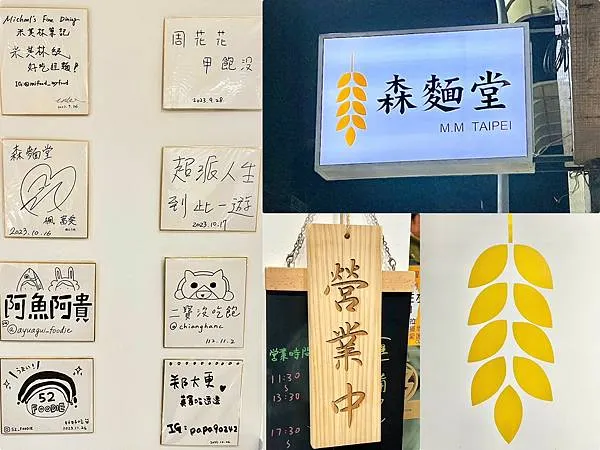 Michael's Fine Dining
米其林筆記
米其林級
好吃拌麵?
IG@mifood_myfood
2023.9.26
周花花
甲飽沒
2023.9.28
森麵堂
楓 富愛
2023.10.16
超派人生
到此一遊
2023.10.17
阿魚阿貴
@ayuagui_foodie
二寶沒吃飽
@chianghanc
112.11.2
52
FOODIE
52_FOODIE
2023.11.26
鄭大東
IG:papa90242
森麵堂
M.M TAIPEI
營業中
營業時間
11:30
S
13:30
17:30
S